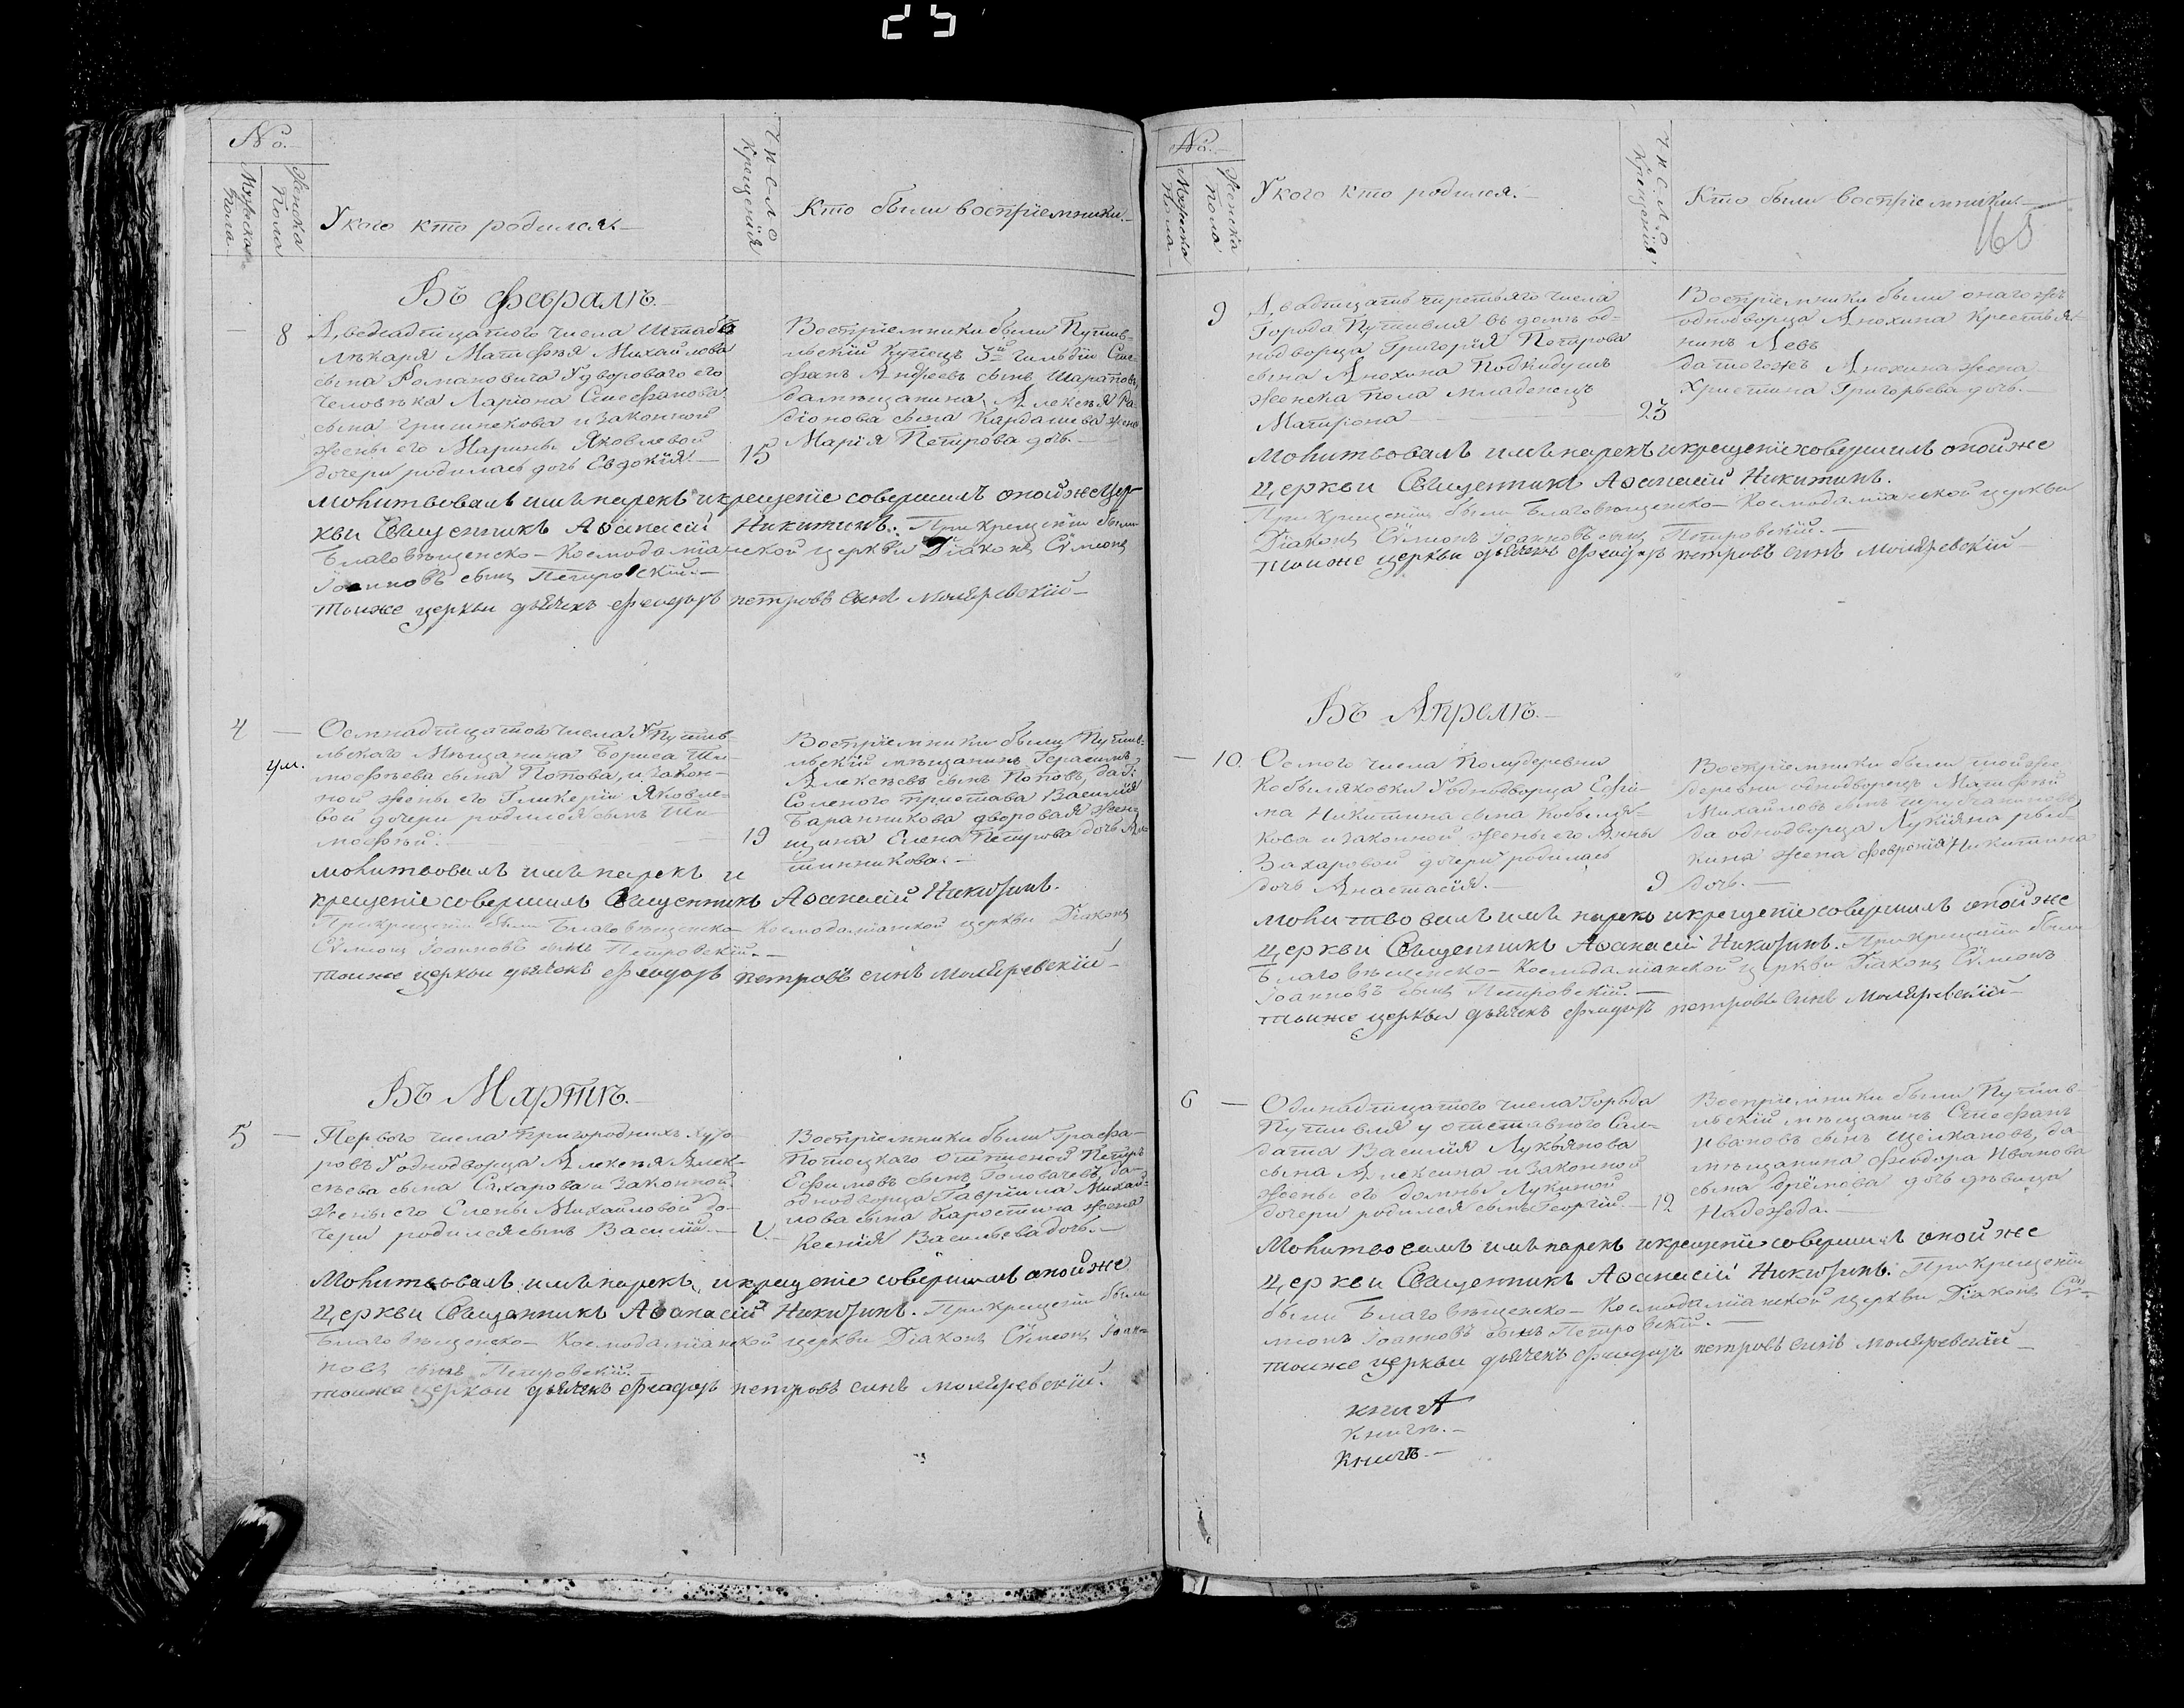 25
No.
Мужеска Пола
Женска Пола
У кого кто родился.
Число Крещенїя
Кто были воспрїемники.
Въ Февралѣ.
8
Двенадтцатого числа Штабъ
лѣкаря Матфея Михайлова
сына Романовича Удворового его
человѣка Ларїона Стефанова
сына Гришнекова и законной
жены его Марины Яковлевой
дочери родилась дочь Евдокїя.
15
Воспрїемники были Путив-
льскїй купецъ 3й гильдїи Сте-
фанъ Андреевъ сынъ Шараповъ,
да мѣщанина Алексея Ра-
дїонова сына Кардашева жена
Марїя Петрова дочь.
Молитвовалъ имѣ нарекъ и крещенїе совершилъ оной же Цер-
кви Священникъ Аѳанасїй Никитинъ. При крещенїи были
Благовѣщенско-Космодамїанской церкви Дїаконъ Сѵмеонъ
Іоанновъ сынъ Петровскїй.
тоиже церкви дьячекъ Феодоръ петровъ синъ Моляревскїй
4
ум.
Осмнадтцатого числа У Путив-
льского Мѣщанина Бориса Ти-
мофѣева сына Попова, и закон-
ной жены его Гликерїи Яковле-
вой дочери родился сынъ Ти-
мофѣй.
19
Воспрїемники были Путив-
льскїй мѣщанинъ Герасимъ
Алексѣевъ сынъ Поповъ, да
Соленого пристава Василїя
Баранникова дворовая жен-
щина Елена Петрова дочь
молитвовалъ имѣ нарекъ и
крещенїе совершилъ Священникъ Аѳанасїй Никитинъ.
При крещенїи были Благовѣщенско-Космодамїанской церкви Дїаконъ
Сѵмеонъ Іоанновъ сынъ Петровскїй.
тоиже церкви дьячекъ Феодоръ петровъ синъ Моляревскїй
Въ Мартѣ.
5
Первого числа Пригородныхъ Хуто-
ровъ У однодворца Алексея Алек-
сѣева сына Сахарова и законной
жены его Елены Михайловой до-
чери родился сынъ Василїй.
Воспрїемники были Графа
Потоцкаго Петръ
Ефимовъ сынъ Головачевъ, да
однодворца Гаврїила Михай-
лова сына Каростина жена
Ксенїя Васильева дочь.
Молитвовалъ имѣ нарекъ и крещенїе совершилъ оной же
Церкви Священникъ Аѳанасїй Никитинъ. При крещенїи были
Благовѣщенско-Космодамїанской церкви Дїаконъ Сѵмеонъ Іоан-
новъ сынъ Петровскїй.
тоиже церкви дьячекъ Феодоръ петровъ синъ моляревскїй.
No.
Мужеска Пола
Женска Пола
У кого кто родился.
Число Крещенїя
Кто были воспрїемники.
165
9
Двадтцать третьяго числа
Города Путивля въ домѣ од-
нодворца Григорїя Петрова
сына Анохина Подкидушъ
женска пола младенецъ
Матрона
23
Воспрїемники были онагожъ
однодворца Анохина крестья-
нинъ Левъ
да тогожъ Анохина жена
Христина Григорьева дочь.
молитвовалъ имѣ нарекъ и крещенїе совершилъ оной же
Церкви Священникъ Аѳанасїй Никитинъ.
При крещенїи были Благовѣщенско-Космодамїанской церкви
Дїаконъ Сѵмеонъ Іоанновъ сынъ Петровскїй.
тоиже церкви дьячекъ Феодоръ петровъ синъ Моляревскїй
Въ Апрелѣ.
10.
Осмого числа Полудеревни
Кобыляковки У однодворца Ефи-
ма Никитина сына Кобыля-
кова и законной жены его Анны
Захаровой дочери родилась
дочь Анастасїя.
9
Воспрїемники были тойже
деревни однодворецъ Матфей
Михайловъ сынъ
да однодворца Лукїяна
жена Февронїя Никитина
дочь.
молитвовалъ имѣ нарекъ и крещенїе совершилъ оной же
Церкви Священникъ Аѳанасїй Никитинъ. При крещенїи были
Благовѣщенско-Космодамїанской церкви Дїаконъ Сѵмеонъ
Іоанновъ сынъ Петровскїй.
тоиже церкви дьячекъ Феодоръ петровъ синъ Моляревскїй
6
Одинадтцатого числа Города
Путивля у отставного Сал-
дата Василїя Лукьянова
сына Алексина и законной
жены его Домны Лукиной
дочери родился сынъ Георгїй.
12
Воспрїемники были Путив-
льскїй мѣщанинъ Стефанъ
Ивановъ сынъ Щелкановъ, да
мѣщанина Феодора Иванова
сына Ерёмова дочь дѣвица
Надежда.
Молитвовалъ имѣ нарекъ и крещенїе совершилъ оной же
Церкви Священникъ Аѳанасїй Никитинъ. При крещенїи
были Благовѣщенско-Космодамїанской церкви Дїаконъ Сѵ-
меонъ Іоанновъ сынъ Петровскїй.
тоиже церкви дьячекъ Феодоръ петровъ синъ моляревскїй
книга
Книгѣ.
Книгѣ.